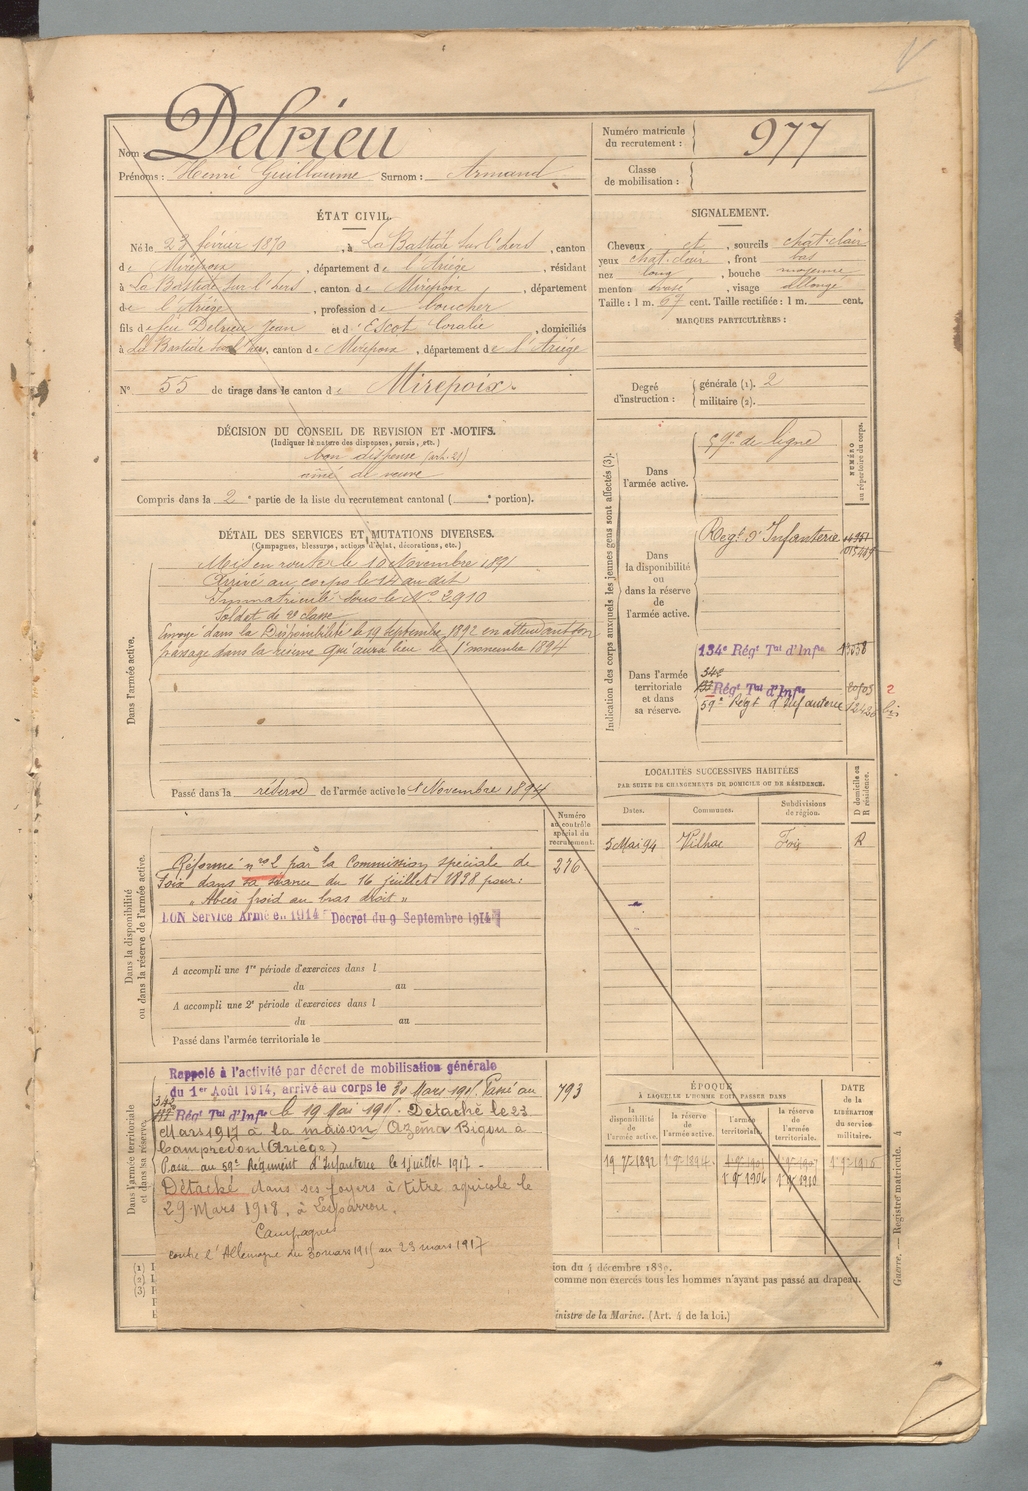 Nom : Delrieu
Prénoms : Henri Guillaume Surnom : Armand
Numéro matricule du recrutement : 977
Classe de mobilisation :
ÉTAT CIVIL.
Né le 23 février 1870, à La Bastide sur l'hers, canton
de Mirepoix, département de l'Ariége, résidant
à La Bastide sur l'hers, canton de Mirepoix, département
de l'Ariége, profession de boucher
fils de feu Delrieu Jean et d'Escot Coralie, domiciliés
à La Bastide sur l'hers, canton de Mirepoix, département de l'Ariége
N° 55 de tirage dans le canton de Mirepoix.
SIGNALEMENT.
Cheveux et, sourcils chat. clair
yeux chat. clair, front bas
nez long, bouche moyenne
menton, visage allongé
Taille : 1 m. 67 cent. Taille rectifiée : 1 m. cent.
MARQUES PARTICULIÈRES :
Degré d'instruction : générale (1). 2
militaire (2).
DÉCISION DU CONSEIL DE REVISION ET MOTIFS.
(Indiquer la nature des dispenses, sursis, etc.)
bon dispensé (art. 21)
aîné de veuve
Compris dans la 2e partie de la liste du recrutement cantonal ( e portion).
DÉTAIL DES SERVICES ET MUTATIONS DIVERSES.
(Campagnes, blessures, actions d'éclat, décorations, etc.)
Dans l'armée active.
Mis en route le 10 Novembre 1891
Arrivé au corps le 14 au dit
Immatriculé sous le N° 2910
Soldat de 2e classe
Envoyé dans la Disponibilité le 19 Septembre 1892 en attendant son
passage dans la réserve qui aura lieu le 1er novembre 1894
Passé dans la réserve de l'armée active le 1 Novembre 1894
Indication des corps auxquels les jeunes gens sont affectés (3).
NUMÉRO au répertoire du corps.
Dans l'armée active.
59e de ligne
Dans la disponibilité ou dans la réserve de l'armée active.
Regt d'Infanterie
Dans l'armée territoriale et dans sa réserve.
134e Régt Tal d'Infie
Régt Tal d'Infie
59e Régt d'Infanterie
2 bis
LOCALITÉS SUCCESSIVES HABITÉES
PAR SUITE DE CHANGEMENTS DE DOMICILE OU DE RÉSIDENCE.
D domicile ou R résidence.
Dates. Communes. Subdivisions de région.
5 Mai 94 Vilhac Foix R
Numéro au contrôle spécial du recrutement.
276
Dans la disponibilité ou dans la réserve de l'armée active.
Réformé n° 2 par la Commission spéciale de
Foix dans sa séance du 16 juillet 1898 pour :
"Abcès froid au bras droit"
BON Service Armé en 1914 Decret du 9 Septembre 1914
A accompli une 1re période d'exercices dans l
du au
A accompli une 2e période d'exercices dans l
du au
Passé dans l'armée territoriale le
Dans l'armée territoriale et dans sa réserve.
Rappelé à l'activité par décret de mobilisation générale
du 1er Août 1914, arrivé au corps le 30 Mars 1915. Passé au
Régt Tal d'Infie le 19 Mai 1915. Détaché le 23
Mars 1917 à la maison Azéma Bigou à
Campredon (Ariège)
Passé au 59e Régiment d'Infanterie le 1 juillet 1917 -
Détaché dans ses foyers à titre agricole le
29 Mars 1918, à Lesparrou.
Campagnes
contre l'Allemagne du 30 mars 1915 au 23 mars 1917
793
ÉPOQUE
À LAQUELLE L'HOMME DOIT PASSER DANS
la disponibilité de l'armée active. la réserve de l'armée active. l'armée territoriale. la réserve de l'armée territoriale.
DATE de la LIBÉRATION du service militaire.
19 7bre 1892 1er 9bre 1894 1er 9bre 1916
1er 9bre 1904 1er 9bre 1910
(1)
(2)
(3)
ion du 4 décembre 1889.
comme non exercés tous les hommes n'ayant pas passé au drapeau.
inistre de la Marine. (Art. 4 de la loi.)
Guerre. — Registre matricule. 4